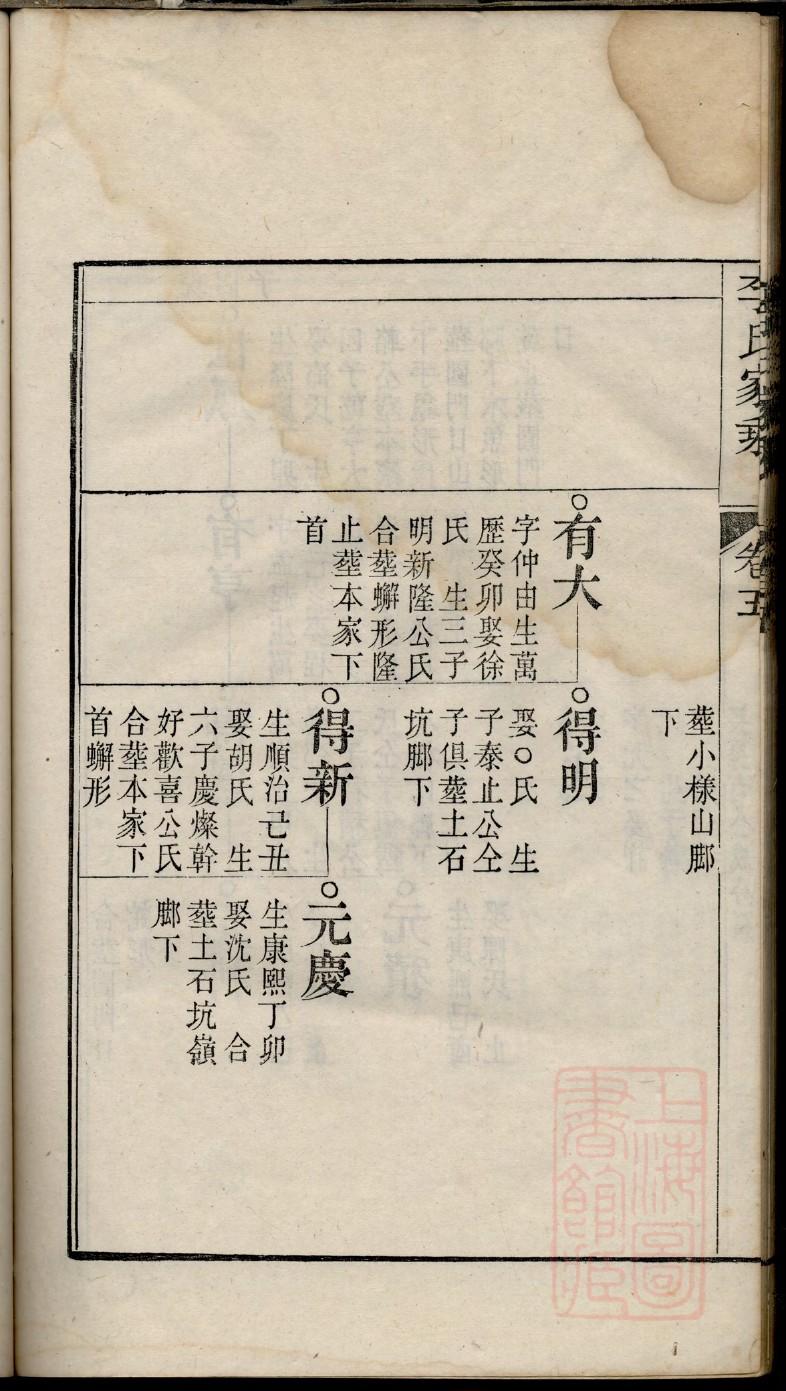 李氏家乘
卷五
塟小樣山脚
下
有大
字仲由生萬
歷癸卯娶徐
氏 生三子
明新隆公氏
合塟蠏形隆
止塟本家下
首
得明
娶○氏 生
子泰止公仝
子俱塟土石
坑脚下
得新
生順治己丑
娶胡氏 生
六子慶燦幹
好歡喜公氏
合塟本家下
首蠏形
元慶
生康熙丁卯
娶沈氏 合
塟土石坑嶺
脚下
上海圖
書館藏